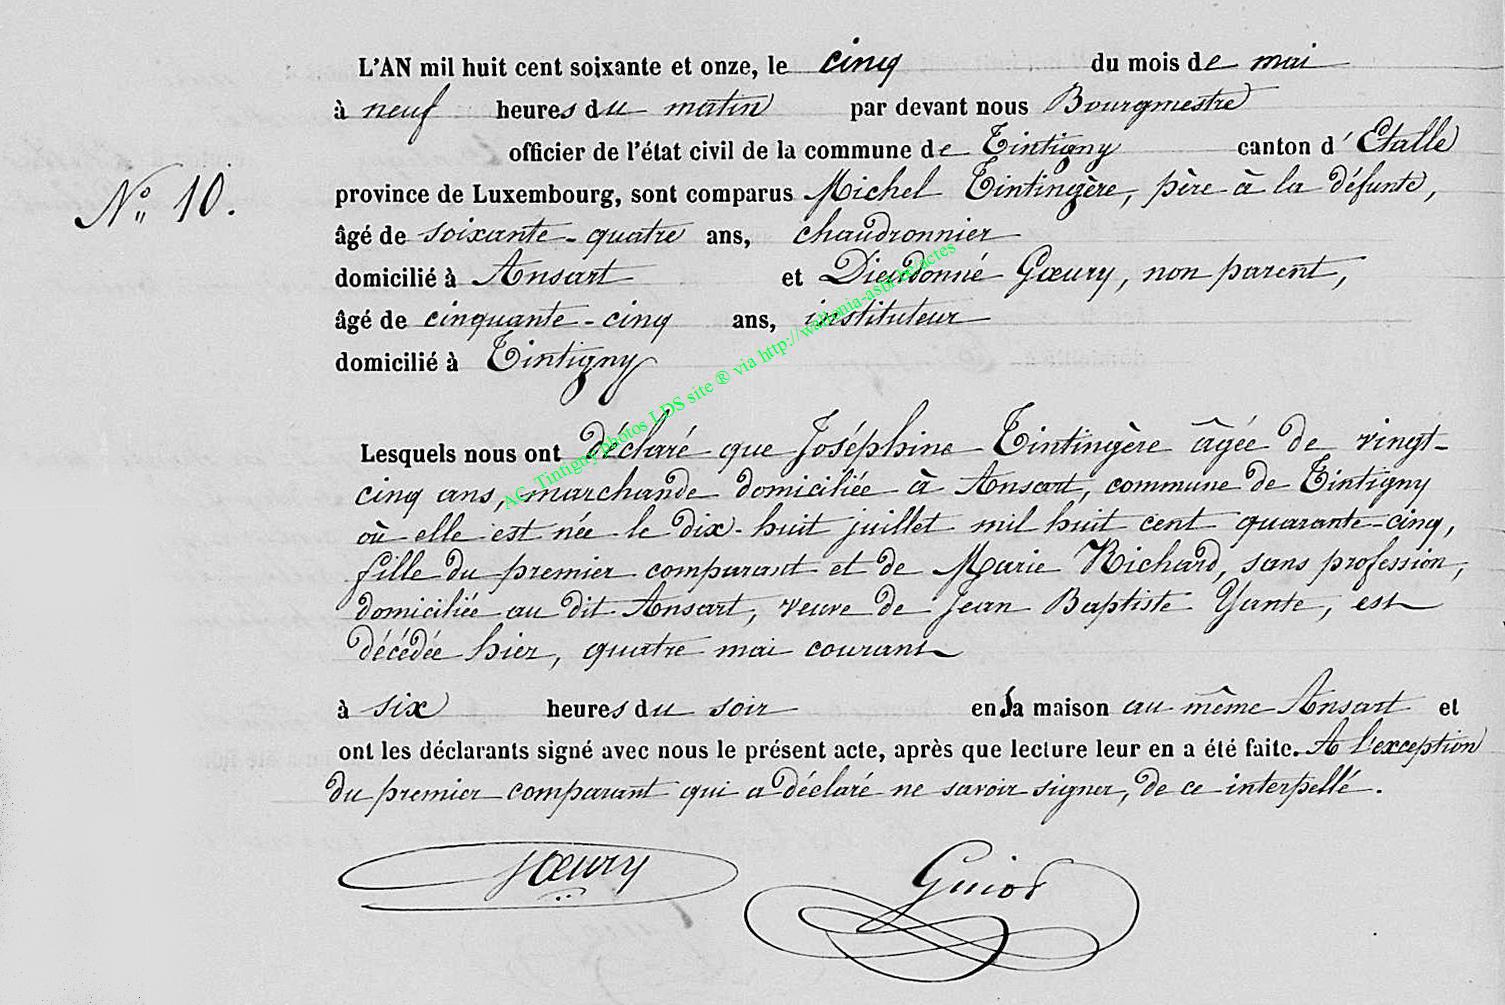 L'AN mil huit cent soixante et onze, le cinq du mois de mai
à neuf heures du matin par devant nous Bourgmestre
officier de l'état civil de la commune de Tintigny canton d'Etalle
N° 10.
province de Luxembourg, sont comparus Michel Tintingère, père à la défunte,
âgé de soixante-quatre ans, chaudronnier
domicilié à Ansart et Dieudonné Gœury, non parent,
âgé de cinquante-cinq ans, instituteur
domicilié à Tintigny
AC Tintigny photos LDS site ® via http://wallonia-asbl.be/actes
Lesquels nous ont déclaré que Joséphine Tintingère âgée de vingt-
cinq ans, marchande domiciliée à Ansart, commune de Tintigny
où elle est née le dix-huit juillet mil huit cent quarante-cinq,
fille du premier comparant et de Marie Richard, sans profession,
domiciliée au dit Ansart, veuve de Jean Baptiste Yante, est
décédée hier, quatre mai courant
à six heures du soir en sa maison au même Ansart et
ont les déclarants signé avec nous le présent acte, après que lecture leur en a été faite. A l'exception
du premier comparant qui a déclaré ne savoir signer, de ce interpellé.
Gœury Guiot